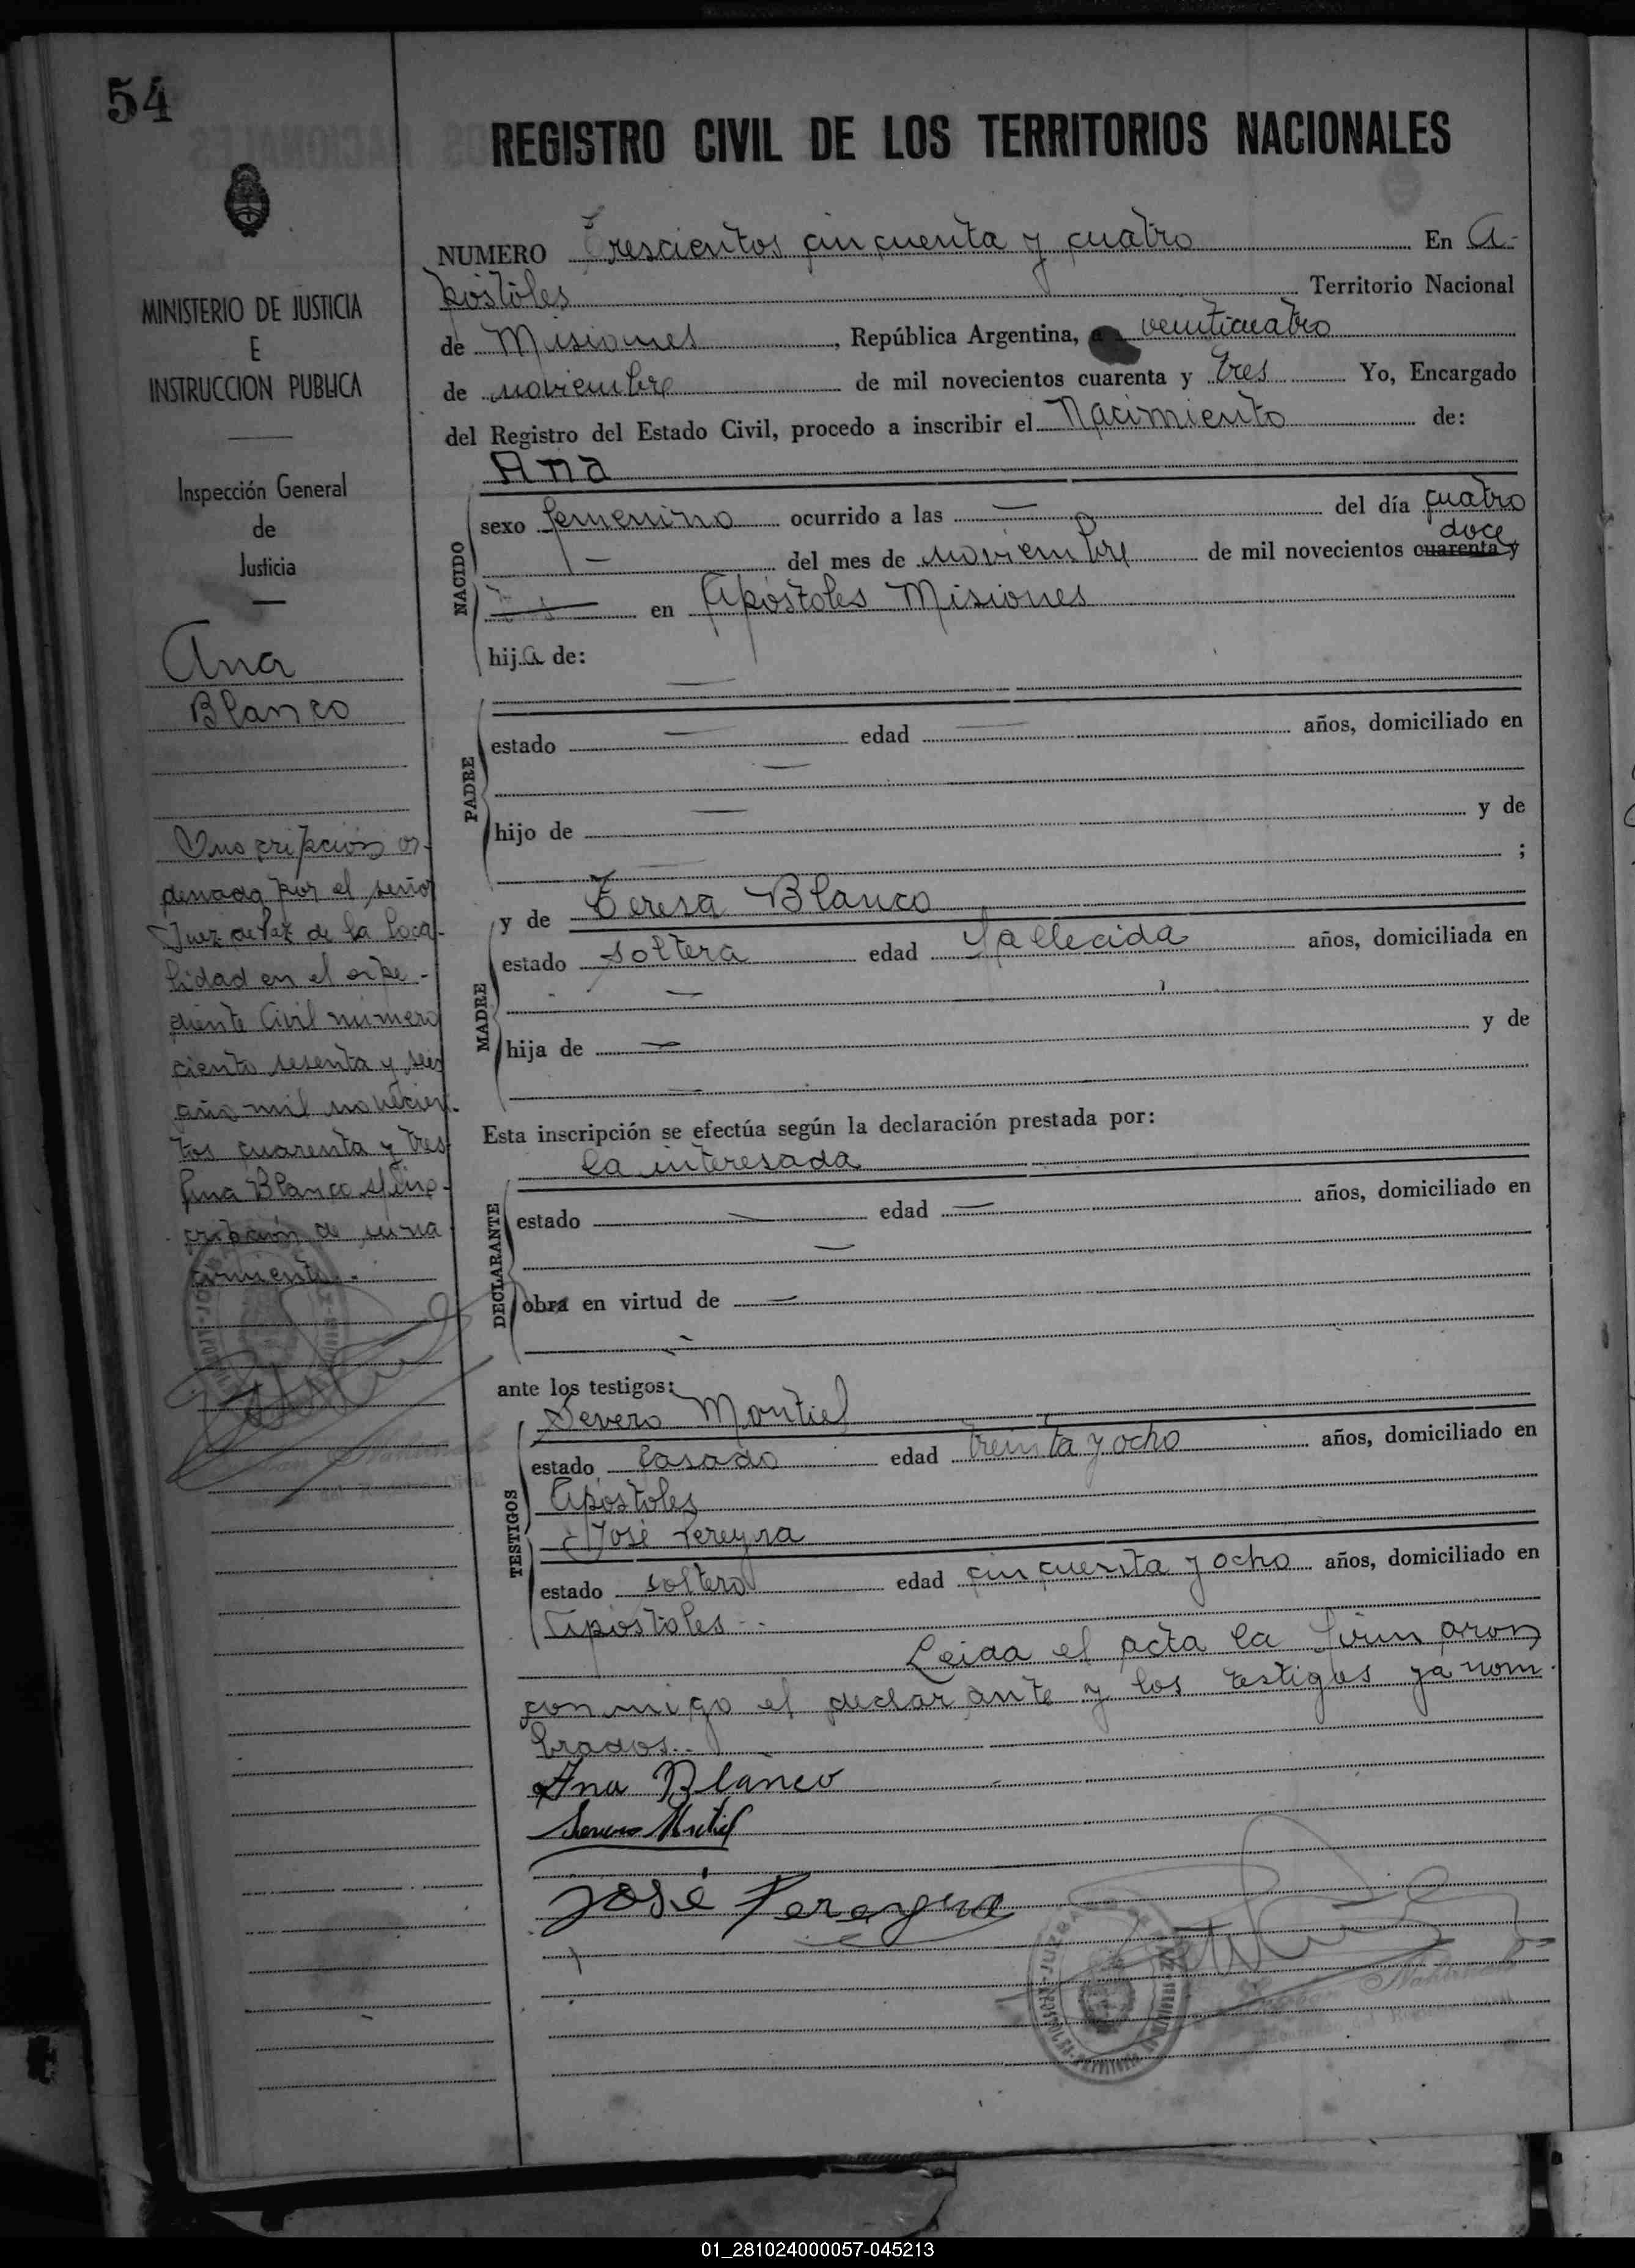 54
REGISTRO CIVIL DE LOS TERRITORIOS NACIONALES
MINISTERIO DE JUSTICIA
E
INSTRUCCION PUBLICA
Inspección General
de
Justicia
Ana
Blanco
Inscripción or-
denada por el señor
Juez de Paz de la loca-
lidad en el expe-
diente Civil número
ciento sesenta y seis
año mil novecien-
tos cuarenta y tres
Ana Blanco s/ins-
cripción de su na
cimiento.
NUMERO Trescientos cincuenta y cuatro En A-
póstoles Territorio Nacional
de Misiones, República Argentina, a veinticuatro
de noviembre de mil novecientos cuarenta y tres Yo, Encargado
del Registro del Estado Civil, procedo a inscribir el Nacimiento de:
Ana
NACIDO
sexo femenino ocurrido a las — del día cuatro
doce
— del mes de noviembre de mil novecientos cuarenta y
en Apóstoles Misiones
hija de:
—
PADRE
estado — edad — años, domiciliado en
—
hijo de — y de
— ;
y de Teresa Blanco
MADRE
estado soltera edad fallecida años, domiciliada en
—
hija de — y de
—
Esta inscripción se efectúa según la declaración prestada por:
la interesada
DECLARANTE
estado — edad — años, domiciliado en
—
obra en virtud de —
—
ante los testigos:
Severo Montiel
TESTIGOS
estado casado edad treinta y ocho años, domiciliado en
Apóstoles
José Pereyra
estado soltero edad cincuenta y ocho años, domiciliado en
Apóstoles
Leida el acta la firmaron
conmigo el declarante y los testigos ya nom-
brados..
Ana Blanco
Severo Montiel
José Pereyra
01_281024000057-045213